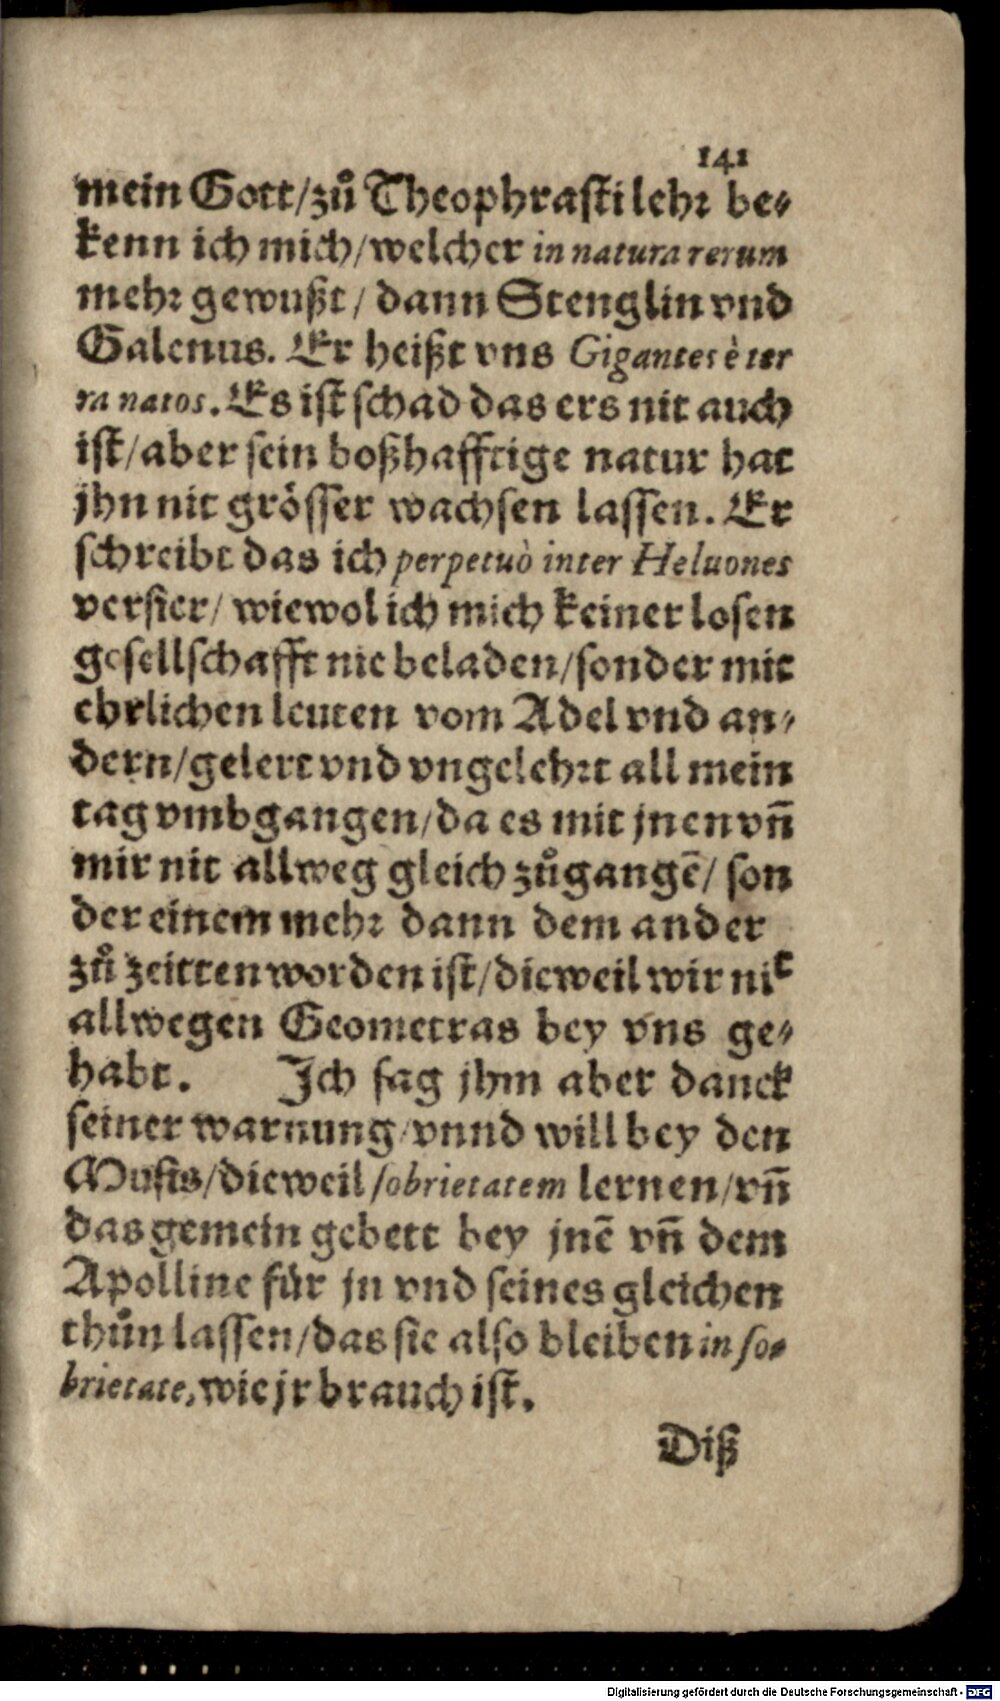 141
mein Gott/zů Theophrasti lehr be-
kenn ich mich/welcher in natura rerum
mehr gewußt/ dann Stenglin vnd
Galenus. Er heißt vns Gigantes è ter
ra natos. Es ist schad das ers nit auch
ist/aber sein boßhafftige natur hat
jhn nit grösser wachsen lassen. Er
schreibt das ich perpetuò inter Heluones
versier/ wiewol ich mich keiner losen
gesellschafft nie beladen/sonder mit
ehrlichen leuten vom Adel vnd an-
dern/gelert vnd vngelehrt all mein
tag vmbgangen/da es mit jnen vn̄
mir nit allweg gleich zůgangē/ son
der einem mehr dann dem ander
zů zeitten worden ist/dieweil wir nit
allwegen Geometras bey vns ge-
habt. Ich sag jhm aber danck
seiner warnung/vnnd will bey den
Musis/dieweil sobrietatem lernen/vn̄
das gemein gebett bey jnē vn̄ dem
Apolline für jn vnd seines gleichen
thůn lassen/das sie also bleiben in so-
brietate, wie jr brauch ist.
Diß
Digitalisierung gefördert durch die Deutsche Forschungsgemeinschaft - DFG